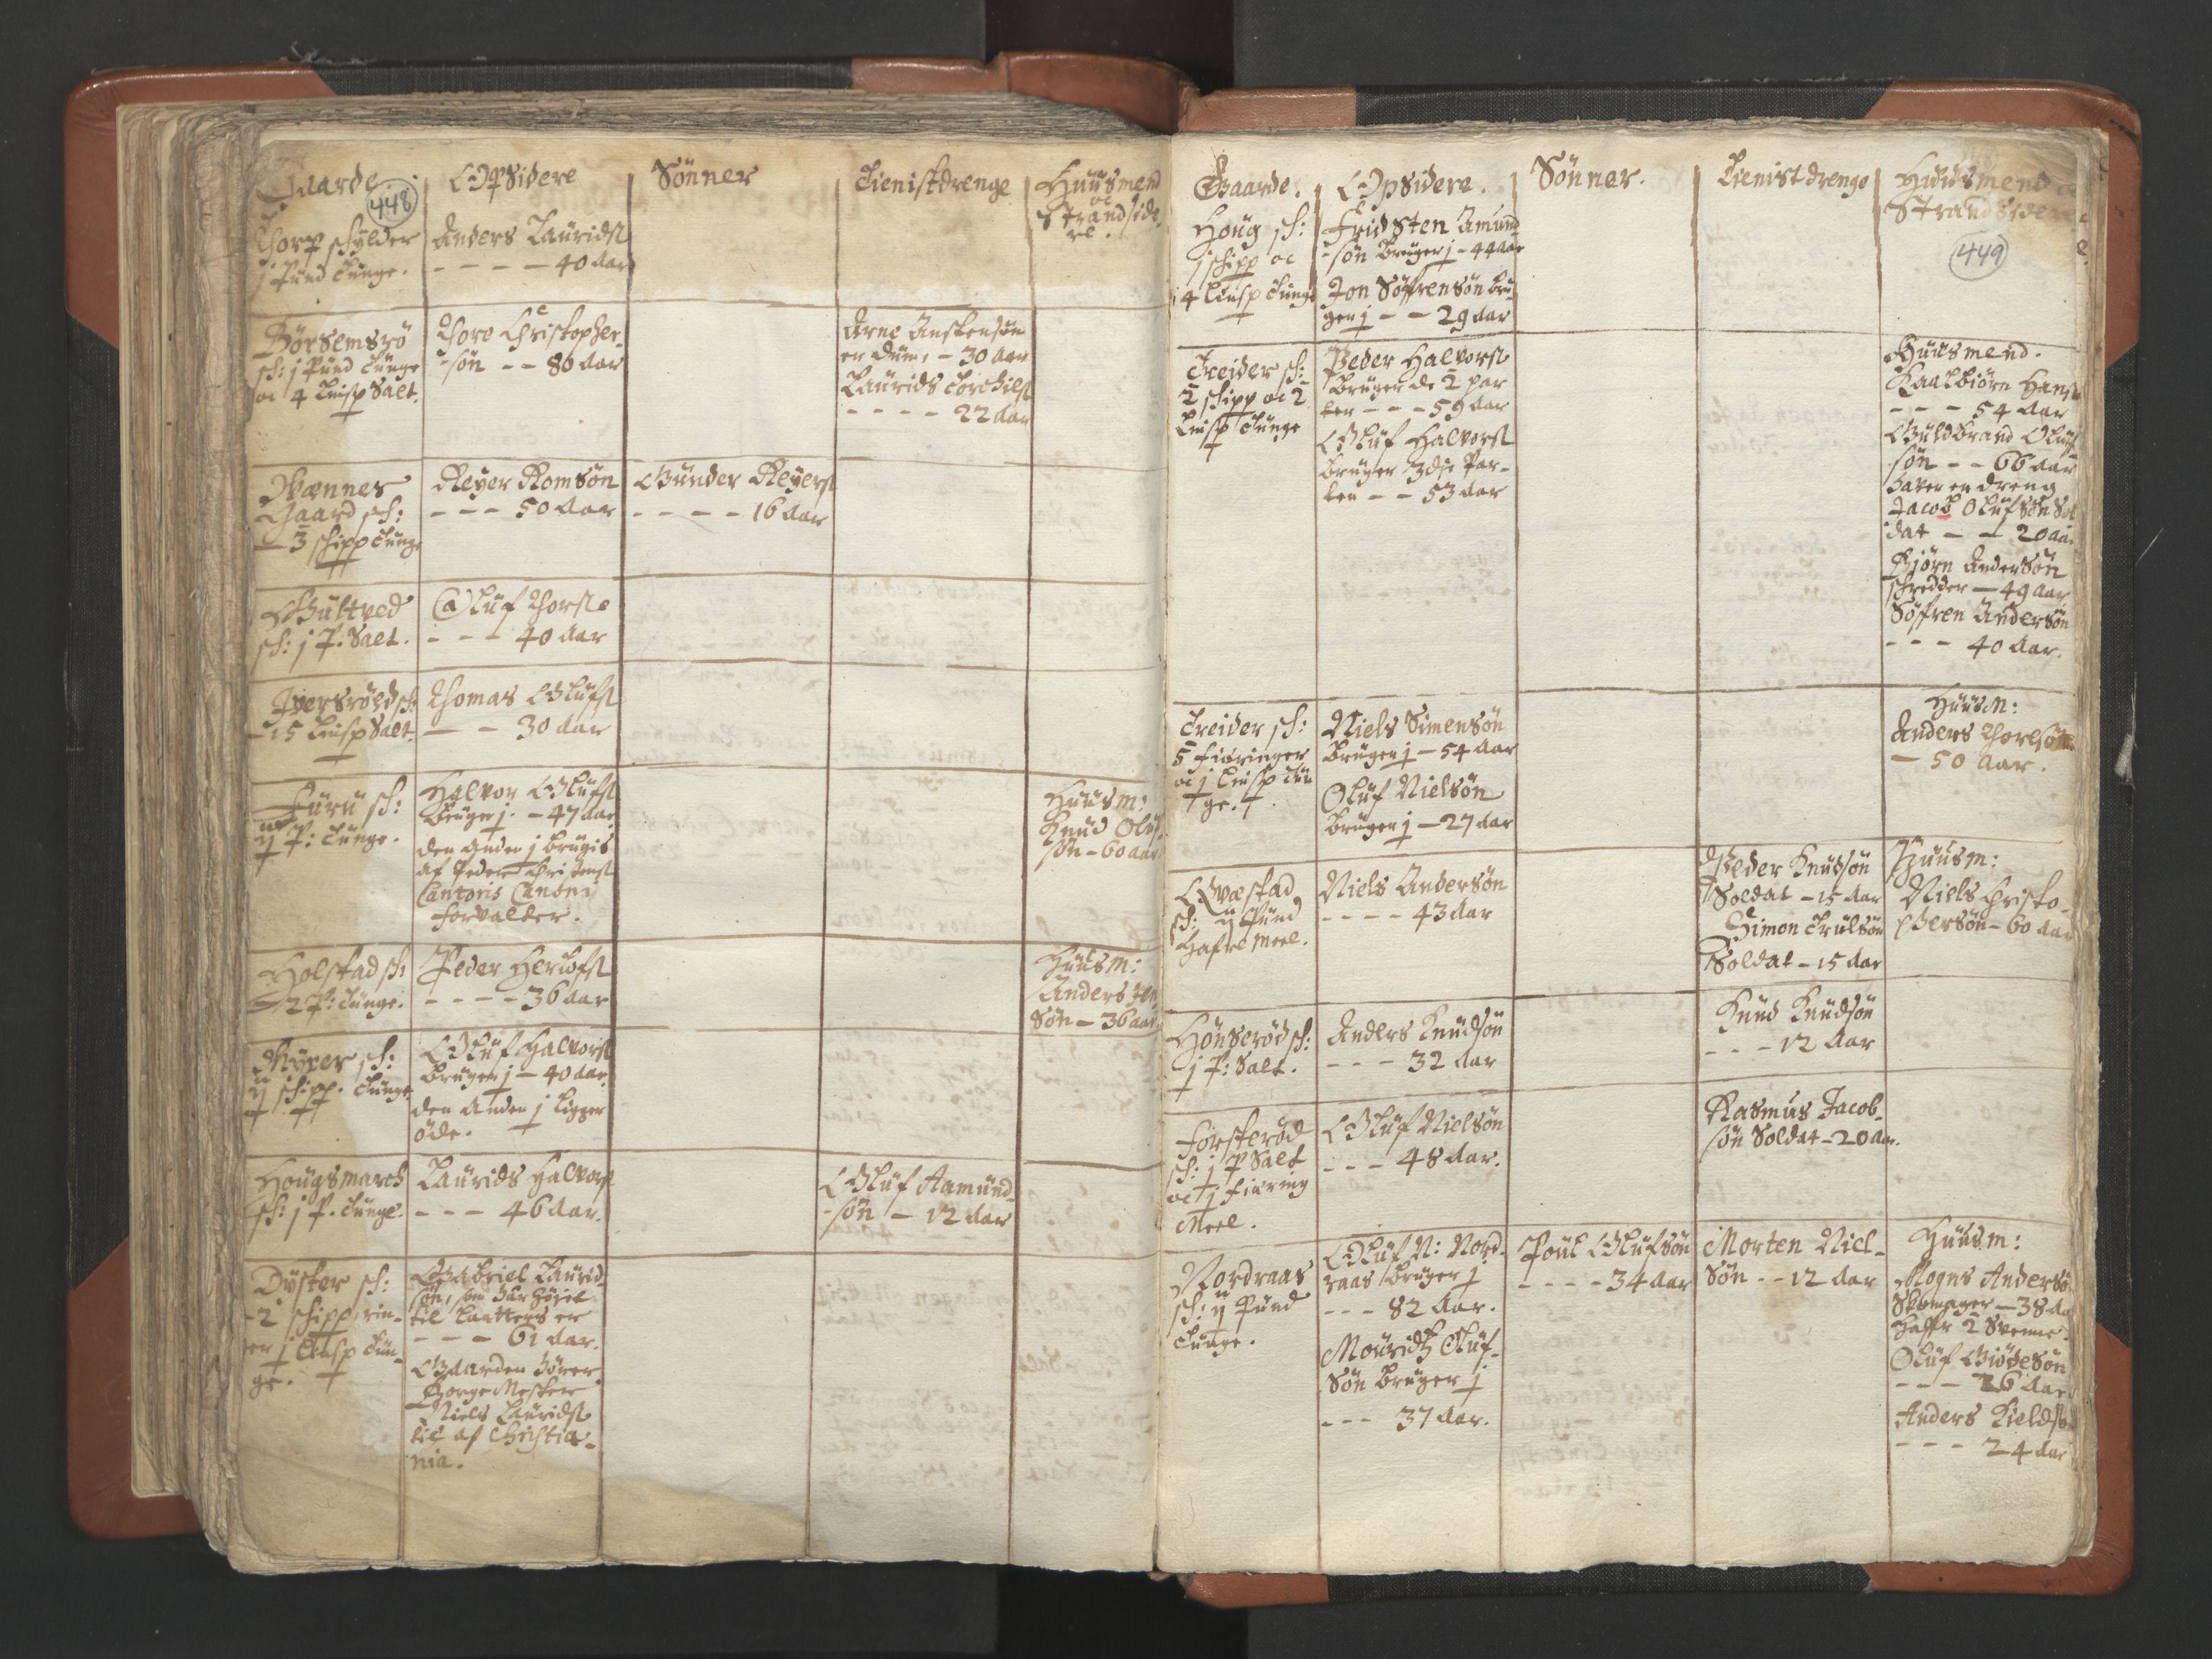 Gaarde
448
Opsidere
Sönner
Tienistdrenge
Huusmend
oc
Strandside
re.
Thorp schylder
j Pund Tunge.
Anders Lauridsl
- - - - - 40 Aar
Börsemsrö
sch: j Pund Tunge
oc 4 Lisp Salt.
Thore Christopher-
-sön - - 86 Aar
Arne Anstensön
- 30 Aar
Laurids Torchilsl
- - - - 22 Aar
Wænnes
Gaard sch:
- 3 schipp Tunge
Reyer Romsön
- - - 50 Aar
Gunder Reyersl
- - - - 16 Aar
Gultved
sch: j P. Salt.
Oluf Thorsl
- - - 40 Aar
Iversröed sch:
- 15 Lisp Salt.
Thomas Olufsl
- - 30 Aar
Furu sch:
ij P: Tunge.
Halvor Olufsl
Bruger j. - 47 Aar
den Anden j brugis
af Peder Christensl
Cantoris Canoni
forvalter.
Huusm:
Knud Oluf
sön - 60 Aar
Holstad sch:
- 2 P: Tunge.
Peder Herlofsl
- - - - 36 Aar
Huusm:
Anders Jen
Sön - 36 Aar
Myrer sch:
ij schipp. Tunge
Oluf Halvorsl
Bruger j - 40 Aar.
den Anden j ligger
öde.
Hougsmarch
sch: j P. Tunge.
Laurids Halvorsl
- - - 46 Aar.
Oluf Aamund
-sön - 12 Aar
Dyster sch:
- 2 schipp rin-
er j Lisp Tun-
ge.
Gabriel Laurid-
sön, som har höjet
til Laatters er
- - - 61 Aar.
Gaarden hörer
BorgeMester
Niels Lauridsl
til af Christia-
nia.
Gaarde.
Opsidere.
Sönner.
Tienistdrenge
Huusmend oc
Strandsidere
449
Houg sch:
j schipp oc
4 Lisp Tunge
Fridsten Amund-
-sön Bruger j - 44 Aar
Jon Söffrensön bru-
ger j - - 29 Aar
Treider sch:
2 schipp oc 2
Lisp Tunge
Peder Halvorsl
Bruger de 2 par
ter - - - 59 Aar
Oluf Halvorsl
Bruger 3die Par-
ten - - 53 Aar
Huusmend.
Kaalbiörn Hansl
- - - 54 Aar
Guldbrand Oluf
sön - - 66 Aar
haver en dreng
Jacob Olufsön Sol
dat - - 20 Aar
Björn Andersön
schredder - 49 Aar
Söffren Andersön
- - - 40 Aar.
Treider sch:
5 Fieringer
oc j Lisp Tun
ge.
Niels Simensön
Bruger j - 54 Aar
Oluf Nielsön
Bruger j - 27 Aar
Huusm:
Anders Thorlsön
- 50 Aar.
Qvæstad
sch: ij Pund
Hafre Meel.
Niels Andersön
- - - - 43 Aar
Peder Knudsön
Soldat - 15 Aar
Simon Trulsön
Soldat - 15 Aar
Huusm:
Niels Christo-
phersön - 60 Aar
Hönseröd sch:
j P: Salt.
Anders Knudsön
- - - 32 Aar
Knud Knudsön
- - - 12 Aar
Försteröd
sch: j P Salt
oc j Fiering
Meel.
Oluf Nielsön
- - - 48 Aar.
Rasmus Jacob-
sön Soldat - 20 Aar.
Nordraas
sch: ij Pund
Tunge.
Oluf N: Nord-
raas Bruger j
- - - 82 Aar.
Mouridz Oluf-
Sön Bruger j
- - - 37 Aar.
Poul Olufsön
- - - - 34 Aar
Morten Niel-
Sön - - 12 Aar
Huusm:
Mogns Andersö
Skomager - 38 Aa
Haffr 2 Svenne.
Oluf Giödesön
- - - 26 Aar
Anders Kieldsö
- - - 24 Aar